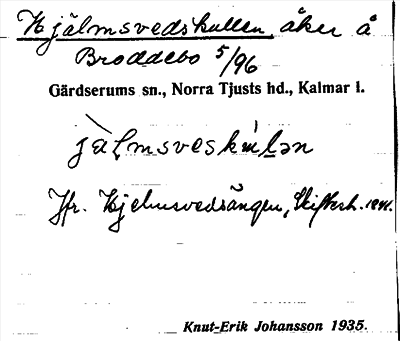 Hjälmsvedskullen åker å
Broddebo 5/96
Gärdserums sn., Norra Tjusts hd., Kalmar l.
jälmsveskulən
Jfr. Hjelmsvedsängen, Skiftesh. 1841.
Knut-Erik Johansson 1935.